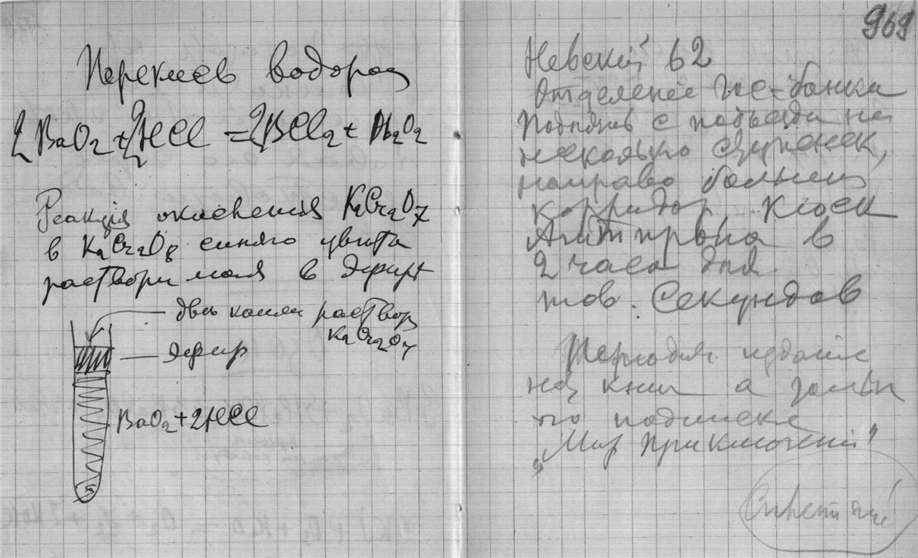 Перекись водород
2BaO2 + 2HCl = 2BCl2 + H2O2
Реакция окисления K2Cr2O7
в K2Cr2O8 синяго цвета
растворимая в эфире
две капли раствор
K2Cr2O7
эфир
BaO2 + 2HCl
969
Невский 62
Отделение Гос-банка
Подняв с подъезда на
несколько ступенек,
направо больш
корридор киоск
Агитпропа в
2 часа дня
тов. Секундов
Периодич издание
не книг а
подписка
"Мир приключений"